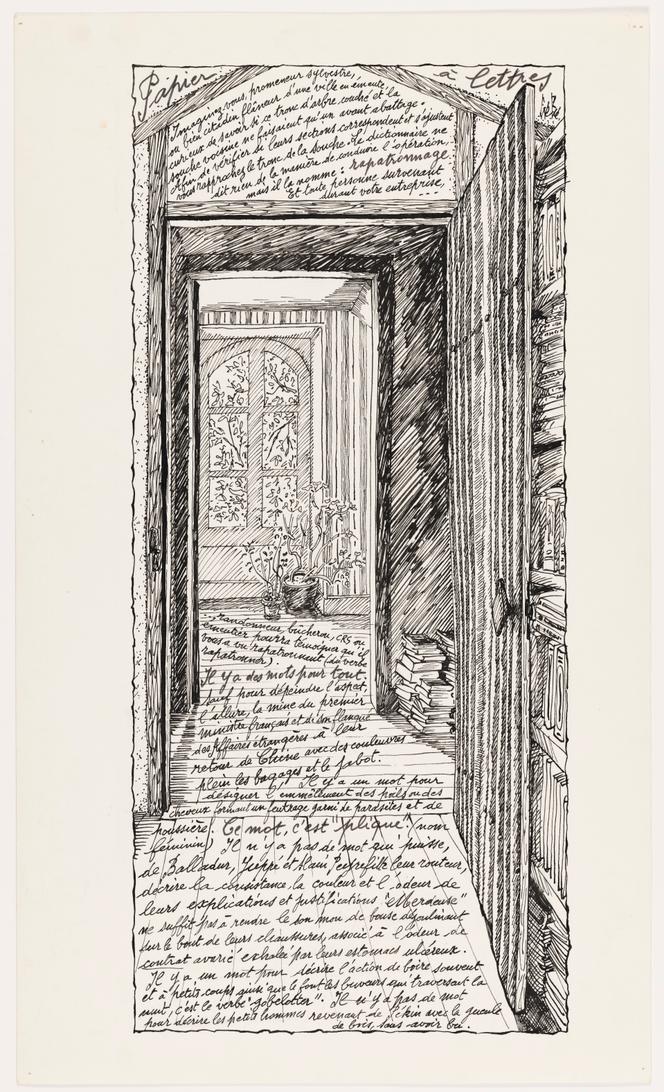 Papier à lettres
Imaginez-vous promeneur sylvestre,
ou bien citadin flâneur d'une ville en émeute,
curieux de savoir si ce tronc d'arbre coudré et la
souche voisine ne faisaient qu'un avant abattage.
Afin de vérifier si leurs sections correspondent et s'ajustent
vous rapprochez le tronc de la souche. Le dictionnaire ne
dit rien de la manière de conduire l'opération,
mais il la nomme : rapatronnage.
Et toute personne survenant
durant votre entreprise,
..., randonneur, bûcheron, CRS ou
émeutier pourra témoigner qu'il
vous a vu rapatronnant (du verbe
rapatronner).
Il y a des mots pour tout,
sauf pour dépeindre l'aspect,
l'allure, la mine du premier
ministre français et d'son flanqué
des affaires étrangères à leur
retour de Chine avec des couleuvres
plein les bagages et le jabot.
Il y a un mot pour
désigner l'emmêlement des poils ou des
cheveux formant un feutrage garni de parasites et de
poussière. Ce mot, c'est "plique" (nom
féminin) Il n'y a pas de mot qui puisse,
de Balladur, Juppé et Alain Peyrefitte leur routeur,
décrire la consistance, la couleur et l'odeur de
leurs explications et justifications. "Merdeuse"
ne suffit pas à rendre le son mou de bouse dégoulinant
sur le bout de leurs chaussures, associé à l'odeur de
contrat avarié exhalée par leurs estomacs ulcéreux.
Il y a un mot pour décrire l'action de boire souvent
et à petits coups ainsi que le font les buveurs qui traversent la
nuit, c'est le verbe "gobelotter". Il n'y a pas de mot
pour décrire les petits hommes revenant de Pékin avec la gueule
de bois, sans avoir bu.